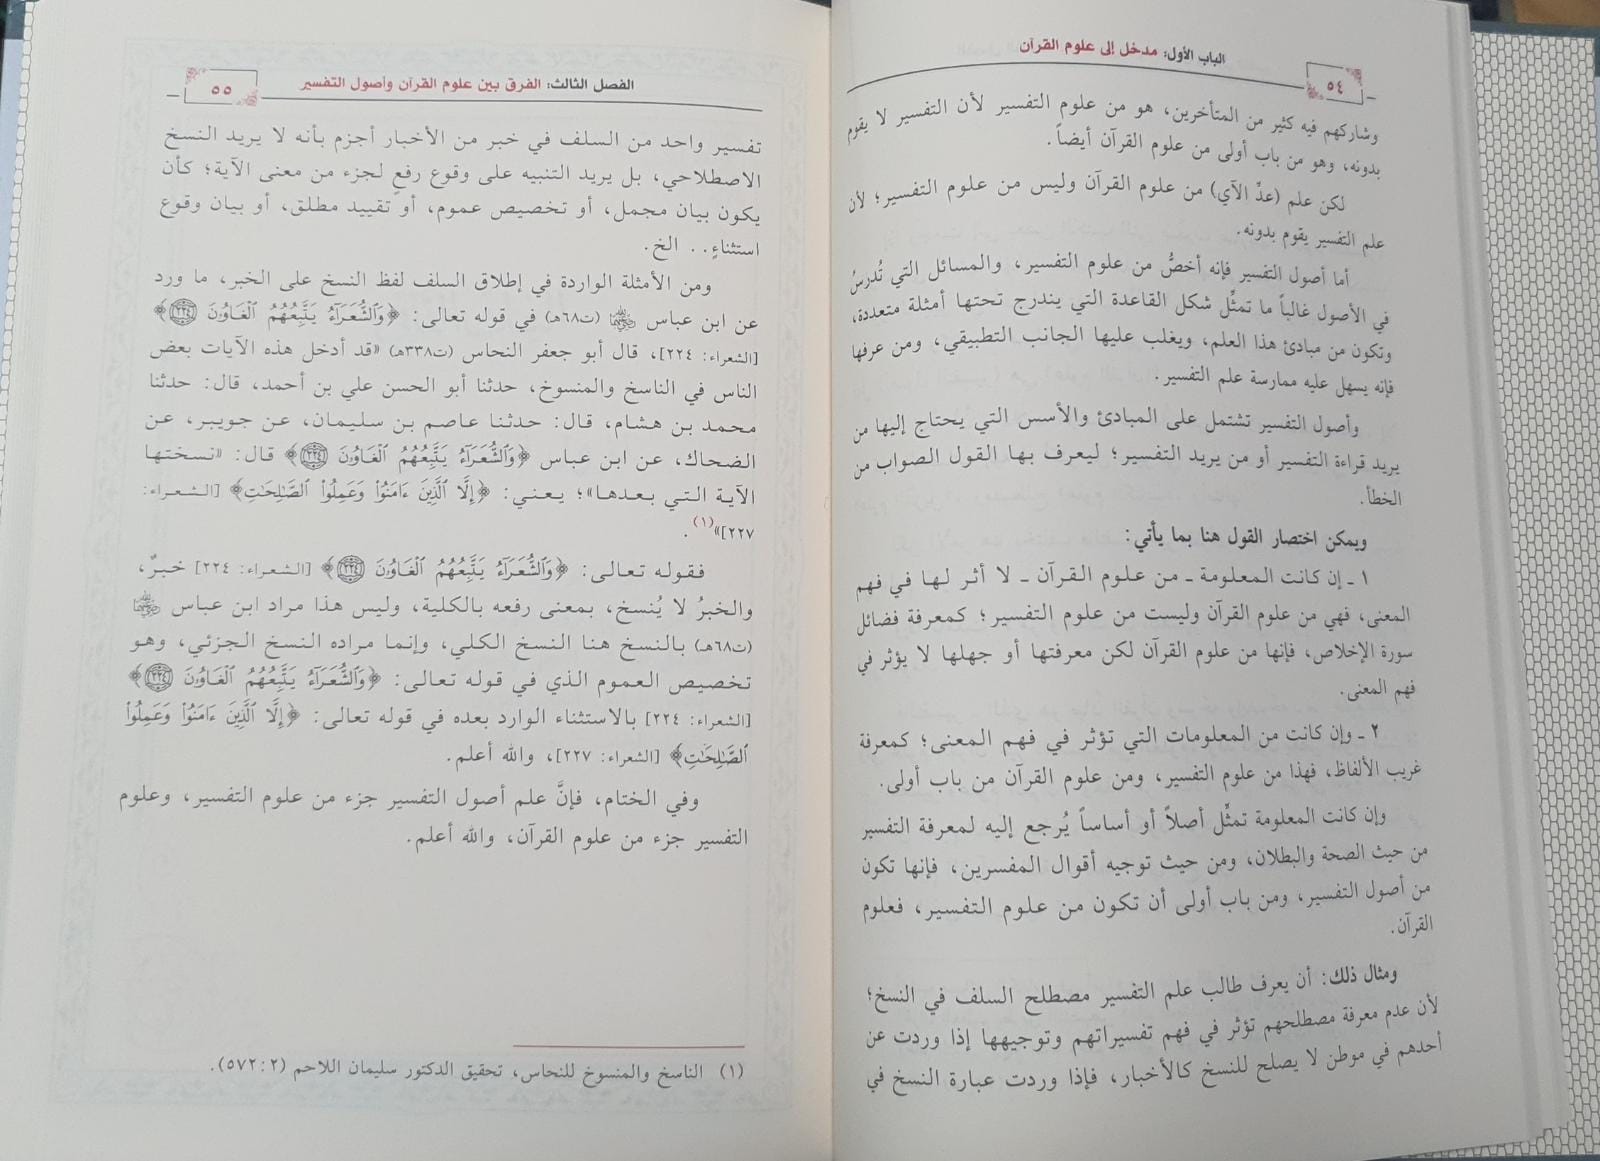 الباب الأول: مدخل إلى علوم القرآن
٥٤
وشاركهم فيه كثير من المتأخرين، هو من علوم التفسير لأن التفسير لا يقوم
بدونه، وهو من باب أولى من علوم القرآن أيضاً.
لكن علم (عدِّ الآي) من علوم القرآن وليس من علوم التفسير؛ لأن
علم التفسير يقوم بدونه.
أما أصول التفسير فإنه أخصُّ من علوم التفسير، والمسائل التي تُدرسُ
في الأصول غالباً ما تمثِّل شكل القاعدة التي يندرج تحتها أمثلة متعددة،
وتكون من مبادئ هذا العلم، ويغلب عليها الجانب التطبيقي، ومن عرفها
فإنه يسهل عليه ممارسة علم التفسير.
وأصول التفسير تشتمل على المبادئ والأسس التي يحتاج إليها من
يريد قراءة التفسير أو من يريد التفسير؛ ليعرف بها القول الصواب من
الخطأ.
ويمكن اختصار القول هنا بما يأتي:
١ ـ إن كانت المعلومة ـ من علوم القرآن ـ لا أثر لها في فهم
المعنى، فهي من علوم القرآن وليست من علوم التفسير؛ كمعرفة فضائل
سورة الإخلاص، فإنها من علوم القرآن لكن معرفتها أو جهلها لا يؤثر في
فهم المعنى.
٢ ـ وإن كانت من المعلومات التي تؤثر في فهم المعنى؛ كمعرفة
غريب الألفاظ، فهذا من علوم التفسير، ومن علوم القرآن من باب أولى.
وإن كانت المعلومة تمثِّل أصلاً أو أساساً يُرجع إليه لمعرفة التفسير
من حيث الصحة والبطلان، ومن حيث توجيه أقوال المفسرين، فإنها تكون
من أصول التفسير، ومن باب أولى أن تكون من علوم التفسير، فعلوم
القرآن.
ومثال ذلك: أن يعرف طالب علم التفسير مصطلح السلف في النسخ؛
لأن عدم معرفة مصطلحهم تؤثر في فهم تفسيراتهم وتوجيهها إذا وردت عن
أحدهم في موطن لا يصلح للنسخ كالأخبار، فإذا وردت عبارة النسخ في
الفصل الثالث: الفرق بين علوم القرآن وأصول التفسير
٥٥
تفسير واحد من السلف في خبر من الأخبار أجزم بأنه لا يريد النسخ
الاصطلاحي، بل يريد التنبيه على وقوع رفعٍ لجزء من معنى الآية؛ كأن
يكون بيان مجمل، أو تخصيص عموم، أو تقييد مطلق، أو بيان وقوع
استثناءٍ.. الخ.
ومن الأمثلة الواردة في إطلاق السلف لفظ النسخ على الخبر، ما ورد
عن ابن عباس ﵄ (ت٦٨هـ) في قوله تعالى: ﴿وَٱلشُّعَرَآءُ يَتَّبِعُهُمُ ٱلْغَاوُۥنَ ۝٢٢٤﴾
[الشعراء: ٢٢٤]، قال أبو جعفر النحاس (ت٣٣٨هـ) «قد أدخل هذه الآيات بعض
الناس في الناسخ والمنسوخ، حدثنا أبو الحسن علي بن أحمد، قال: حدثنا
محمد بن هشام، قال: حدثنا عاصم بن سليمان، عن جويبر، عن
الضحاك، عن ابن عباس ﴿وَٱلشُّعَرَآءُ يَتَّبِعُهُمُ ٱلْغَاوُۥنَ ۝٢٢٤﴾ قال: «نسختها
الآية التي بعدها»؛ يعني: ﴿إِلَّا ٱلَّذِينَ ءَامَنُوا۟ وَعَمِلُوا۟ ٱلصَّـٰلِحَـٰتِ﴾ [الشعراء:
٢٢٧]»(١).
فقوله تعالى: ﴿وَٱلشُّعَرَآءُ يَتَّبِعُهُمُ ٱلْغَاوُۥنَ ۝٢٢٤﴾ [الشعراء: ٢٢٤] خبرٌ،
والخبرُ لا يُنسخ، بمعنى رفعه بالكلية، وليس هذا مراد ابن عباس ﵄
(ت٦٨هـ) بالنسخ هنا النسخ الكلي، وإنما مراده النسخ الجزئي، وهو
تخصيص العموم الذي في قوله تعالى: ﴿وَٱلشُّعَرَآءُ يَتَّبِعُهُمُ ٱلْغَاوُۥنَ ۝٢٢٤﴾
[الشعراء: ٢٢٤] بالاستثناء الوارد بعده في قوله تعالى: ﴿إِلَّا ٱلَّذِينَ ءَامَنُوا۟ وَعَمِلُوا۟
ٱلصَّـٰلِحَـٰتِ﴾ [الشعراء: ٢٢٧]، والله أعلم.
وفي الختام، فإنَّ علم أصول التفسير جزء من علوم التفسير، وعلوم
التفسير جزء من علوم القرآن، والله أعلم.
(١) الناسخ والمنسوخ للنحاس، تحقيق الدكتور سليمان اللاحم (٢: ٥٧٢).